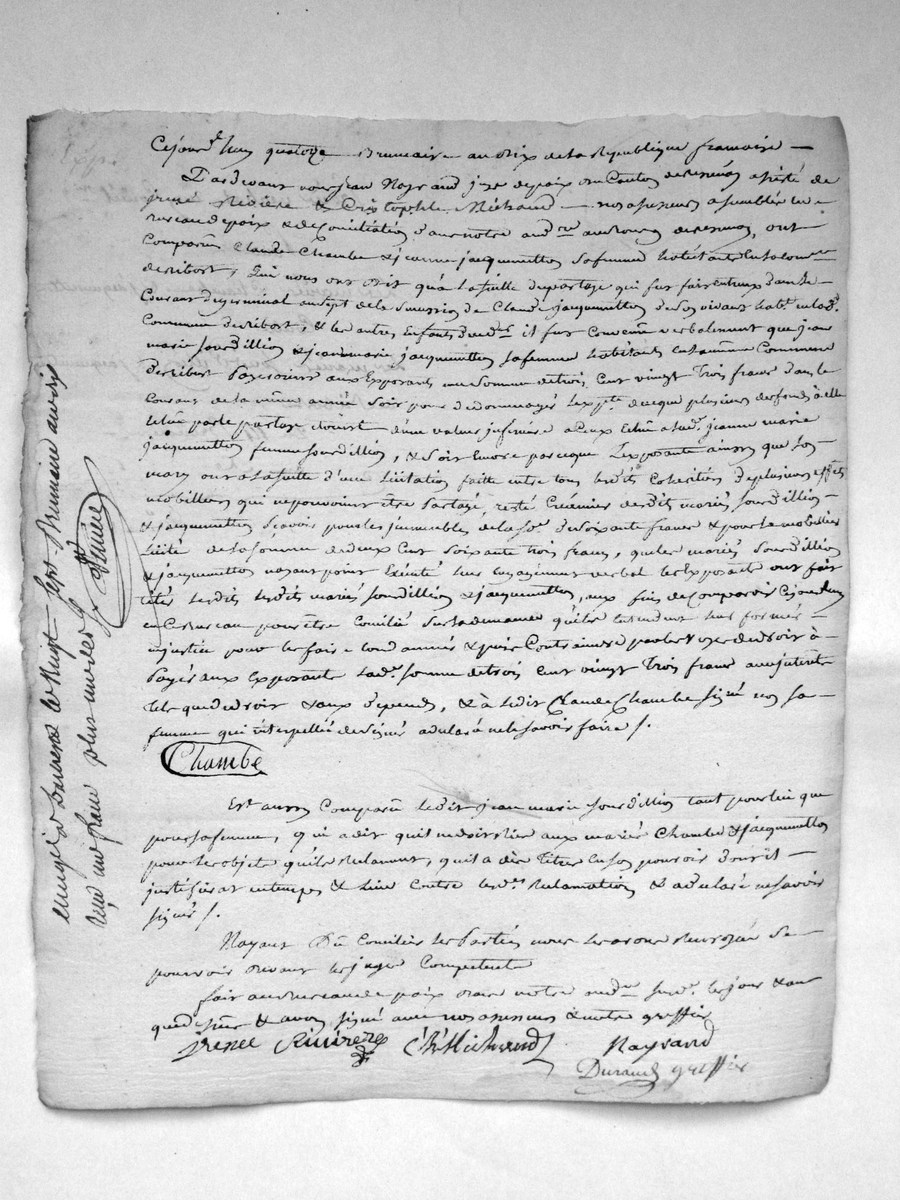 Cejour.d huy quatorze Brumaire an dix de la Republique francoise —
Pardevant nous jean Nayrand juge depaix du Canton de assisté de
jrené Riviere & Cristophle Michaud — nos assesseurs assemblés en
Bureau depaix & de Conciliation dans notre aud.re au Bourg ont
Comparus Claude Chambe & jeanne jacquemetton sa femme habitants en la commune
deribost, Qui nous ont dit qua la suitte du partage qui fut fait entreux dans le
Courant de germinal an sept de la Succession de Claude jacquemetton de son vivant hab.t en la d.e
Commune deribost, & les autres Enfants dud.t il fut Convenu verbalement que jean
marie jourdillion & jeanne marie jacquemetton sa femme habitants en la même Commune
deribost payeroient aux Exposants une Somme detrois Cent vingt trois francs dans le
Courant de la même année soit pour dedommager lexp.te deceque plusieurs des fonds à elle
échu par le partage étoient d'une valeur inferieure a Ceux Echus a lad.e jeanne marie
jacquemetton femme jourdillion, & soit Encore parceque l'exposante ainsi que son
mary ont a la suitte d'une licitation faitte entre tous lesdits Coheritiers de plusieurs effets
mobilliers qui ne pouvoient être partagé, resté Créancier desdits mariés jourdillion
& jacquemetton scavoir pour les immeubles de la so.e de soixante francs & pour le mobillier
licité de la somme de deux Cent soixante trois francs, que les mariés jourdillion
& jacquemetton nayant point Exécuté leur engagement verbal les Exposants ont fait
citer lesdits lesdits mariés jourdillion & jacquemetton, aux fins de Comparoir Cejourdhuy
en Ce Bureau pour être Concilié sur la demande quils entendent leur former
en justice pour les faire condamner & puis Contraindre par les voyes de droit à
payer aux Exposants lad.e somme de trois Cent vingt trois francs aux interets
tels que de droit & aux depends, & à ledit Claude Chambe signé non sa
femme qui interpellée de signer a déclaré ne le savoir faire /.
Chambe
Est aussi Comparu ledit jean marie jourdillion tant pour lui que
pour sa femme, qui a dit quil ne doit rien aux mariés Chambe & jacquemetton
pour les objets quils Reclament, quil a des titres en son pouvoir dont il
justifierat en temps & lieu contre lesd.es Reclamations & a déclaré ne savoir
signer /.
Nayant Pu Concilier les parties nous les avons Renvoyées se
pourvoir devant les juges Competents
fait au Bureau de paix dans notre aud.re susd.t les jour & an
que dessus & avons signé avec nos assesseurs & notre greffier
jrenée Riviere Ch Michaud Nayrand
Durand greffier
Enregistré le Vingt Sept Brumaire an dix
Reçu un franc plus un decime